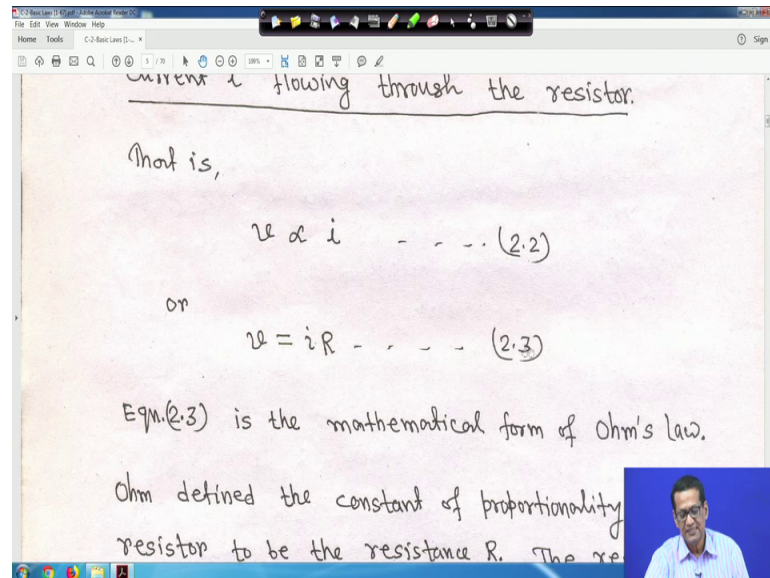 C-2-Basic Laws [1-67].pdf - Adobe Acrobat Reader DC
File Edit View Window Help
Home Tools C-2-Basic Laws [1-... × Sign
5 / 70 199%
Current i flowing through the resistor.
That is,
v ∝ i - - - - . (2.2)
or
v = iR - - - - - (2.3)
Eqn.(2.3) is the mathematical form of Ohm's law.
Ohm defined the constant of proportionality
resistor to be the resistance R. The